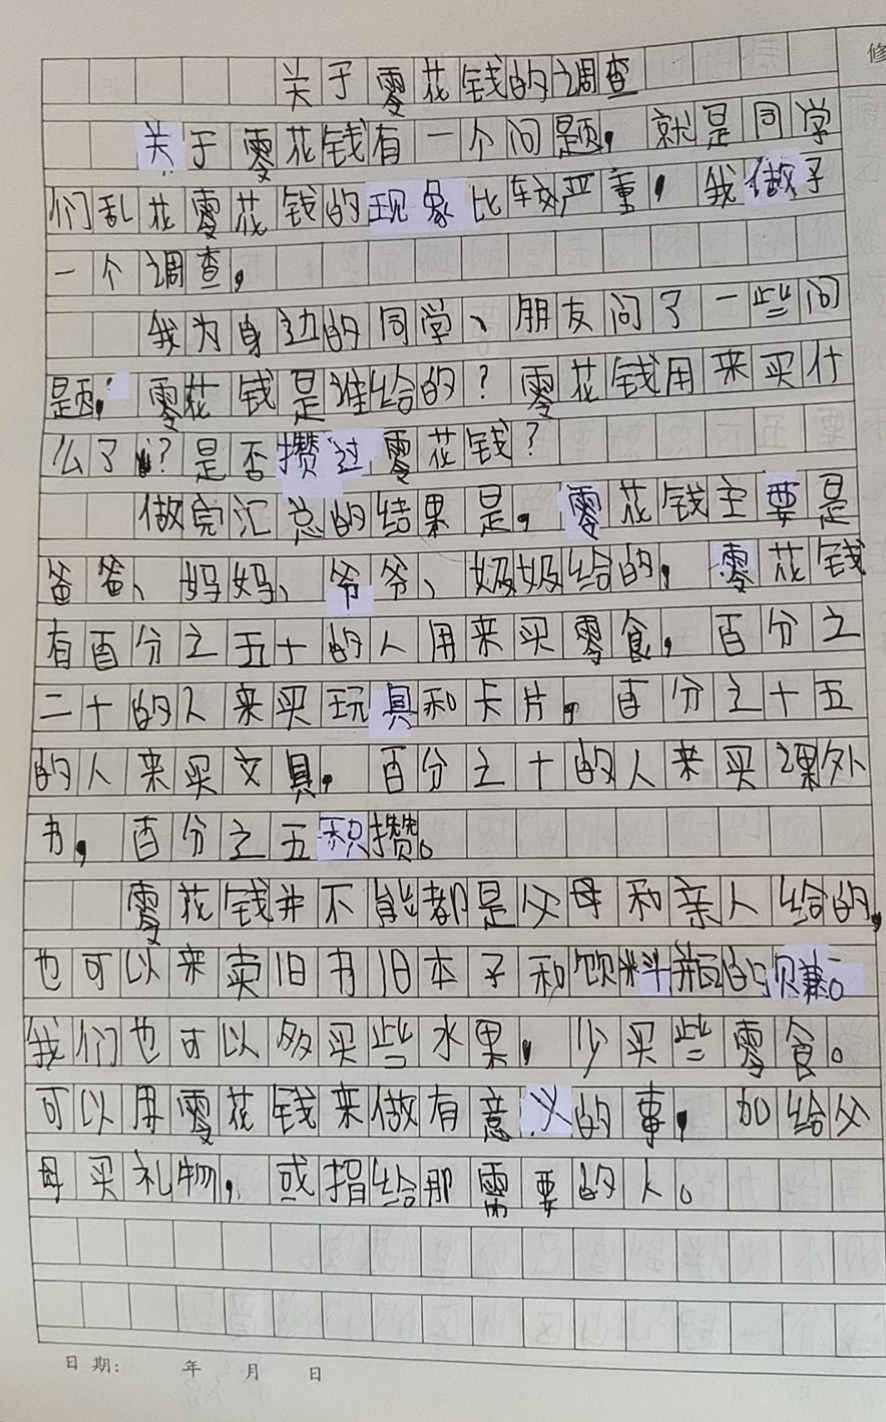 关于零花钱的调查
修
关于零花钱有一个问题，就是同学
们乱花零花钱的现象比较严重，我做了
一个调查，
我为身边的同学、朋友问了一些问
题，零花钱是谁给的？零花钱用来买什
么了？是否攒过零花钱？
做完汇总的结果是，零花钱主要是
爸爸、妈妈、爷爷、奶奶给的，零花钱
有百分之五十的人用来买零食，百分之
二十的人来买玩具和卡片，百分之十五
的人来买文具，百分之十的人来买课外
书，百分之五积攒。
零花钱并不能都是父母和亲人给的，
也可以来卖旧书旧本子和饮料瓶的赚。
我们也可以多买些水果，少买些零食。
可以用零花钱来做有意义的事，加给父
母买礼物，或指给那需要的人。
日期： 年 月 日